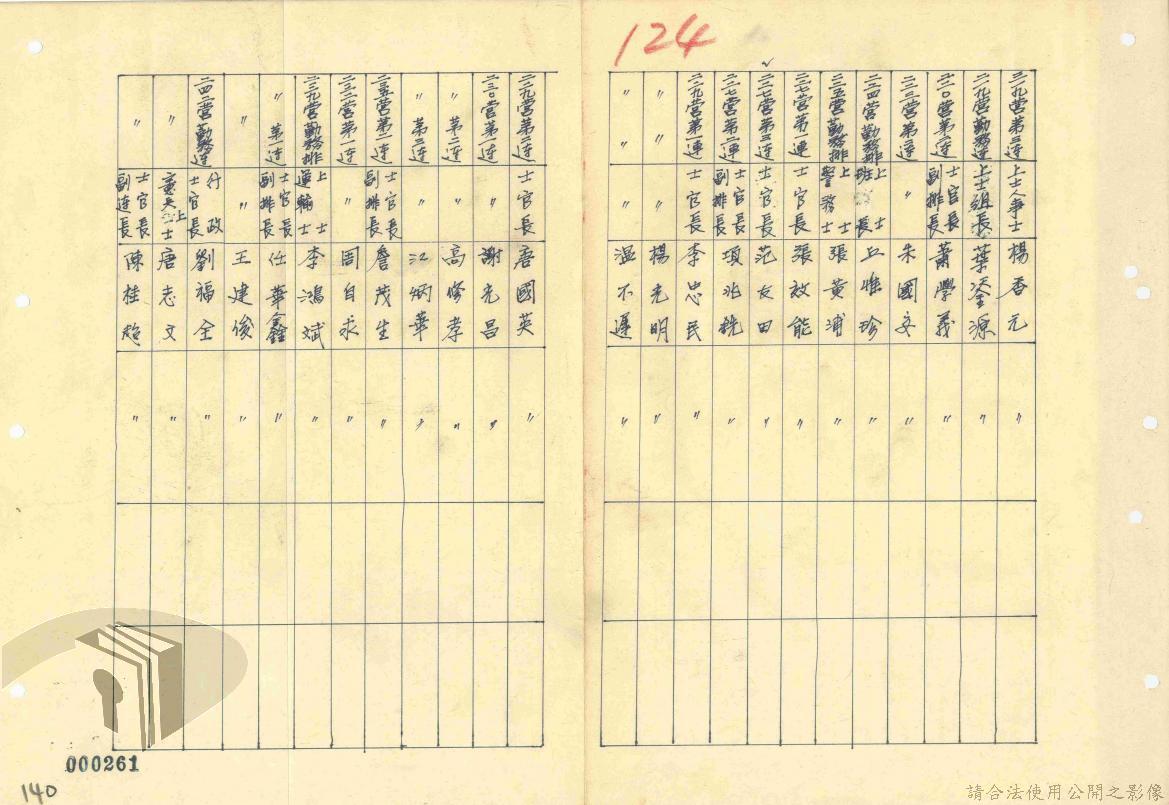 124
三一九營第三連 上士人事士 楊杏元 〃
二一九營勤務連 上士組長 葉溪源 〃
二二〇營第二連 士官長副排長 蕭學義 〃
三三二營第一連 〃 朱國安 〃
二二四營勤務排 上士班長 丘惟珍 〃
二二五營勤務排 上士警務士 張黃浦 〃
二二七營第一連 士官長 張效能 〃
二二七營第三連 士官長 范友田 〃
二二七營第二連 士官長副排長 項兆銑 〃
二二九營第一連 士官長 李忠民 〃
〃 〃 楊光明 〃
〃 〃 溫不遲 〃
二二九營第二連 士官長 唐國英 〃
二三〇營第一連 謝光昌 〃
〃 第二連 高修孝 〃
〃 第三連 〃 江炳華 〃
二三五營第二連 士官長副排長 詹茂生 〃
三三二營第一連 〃 周自求 〃
二三九營勤務排 上士運輸士 李鴻斌 〃
〃 第一連 士官長副排長 任華鑫 〃
〃 〃 王建俊 〃
二四二營勤務連 行政士官長 劉福全 〃
〃 上士 唐志文 〃
〃 士官長副連長 陳桂 〃
000261
140
請合法使用公開之影像